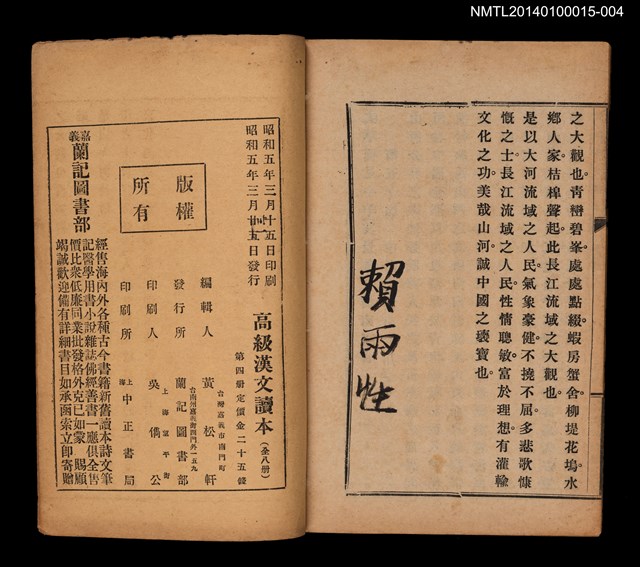 NMTL20140100015-004
之大觀也。靑巒碧峯。處處點綴。蝦房蟹舍。柳堤花塢。水
鄉人家。桔槹聲起。此長江流域之大觀也。
是以大河流域之人民。氣象豪健。不撓不屈。多悲歌慷
慨之士。長江流域之人民。性情聰敏。富於理想。有灌輸
文化之功。美哉山河。誠中國之褒寶也。
賴雨性
昭和五年三月十五日印刷
昭和五年三月廿五日發行
高級漢文讀本(全八册)
第四册定價金二十五錢
版權
所有
編輯人 黃松軒
台灣嘉義市南門町
發行所 蘭記圖書部
台南州嘉義街西門外一五九
印刷人 吳儁公
上海
印刷所 上海中正書局
嘉義 蘭記圖書部
經售海內外各種古今書籍新舊讀本詩文筆
記醫學用書小說雜誌佛經善書一應俱全售
價比衆低廉同業批發格外克已如蒙 賜顧
竭誠歡迎備有詳細書目如承函索立卽寄贈